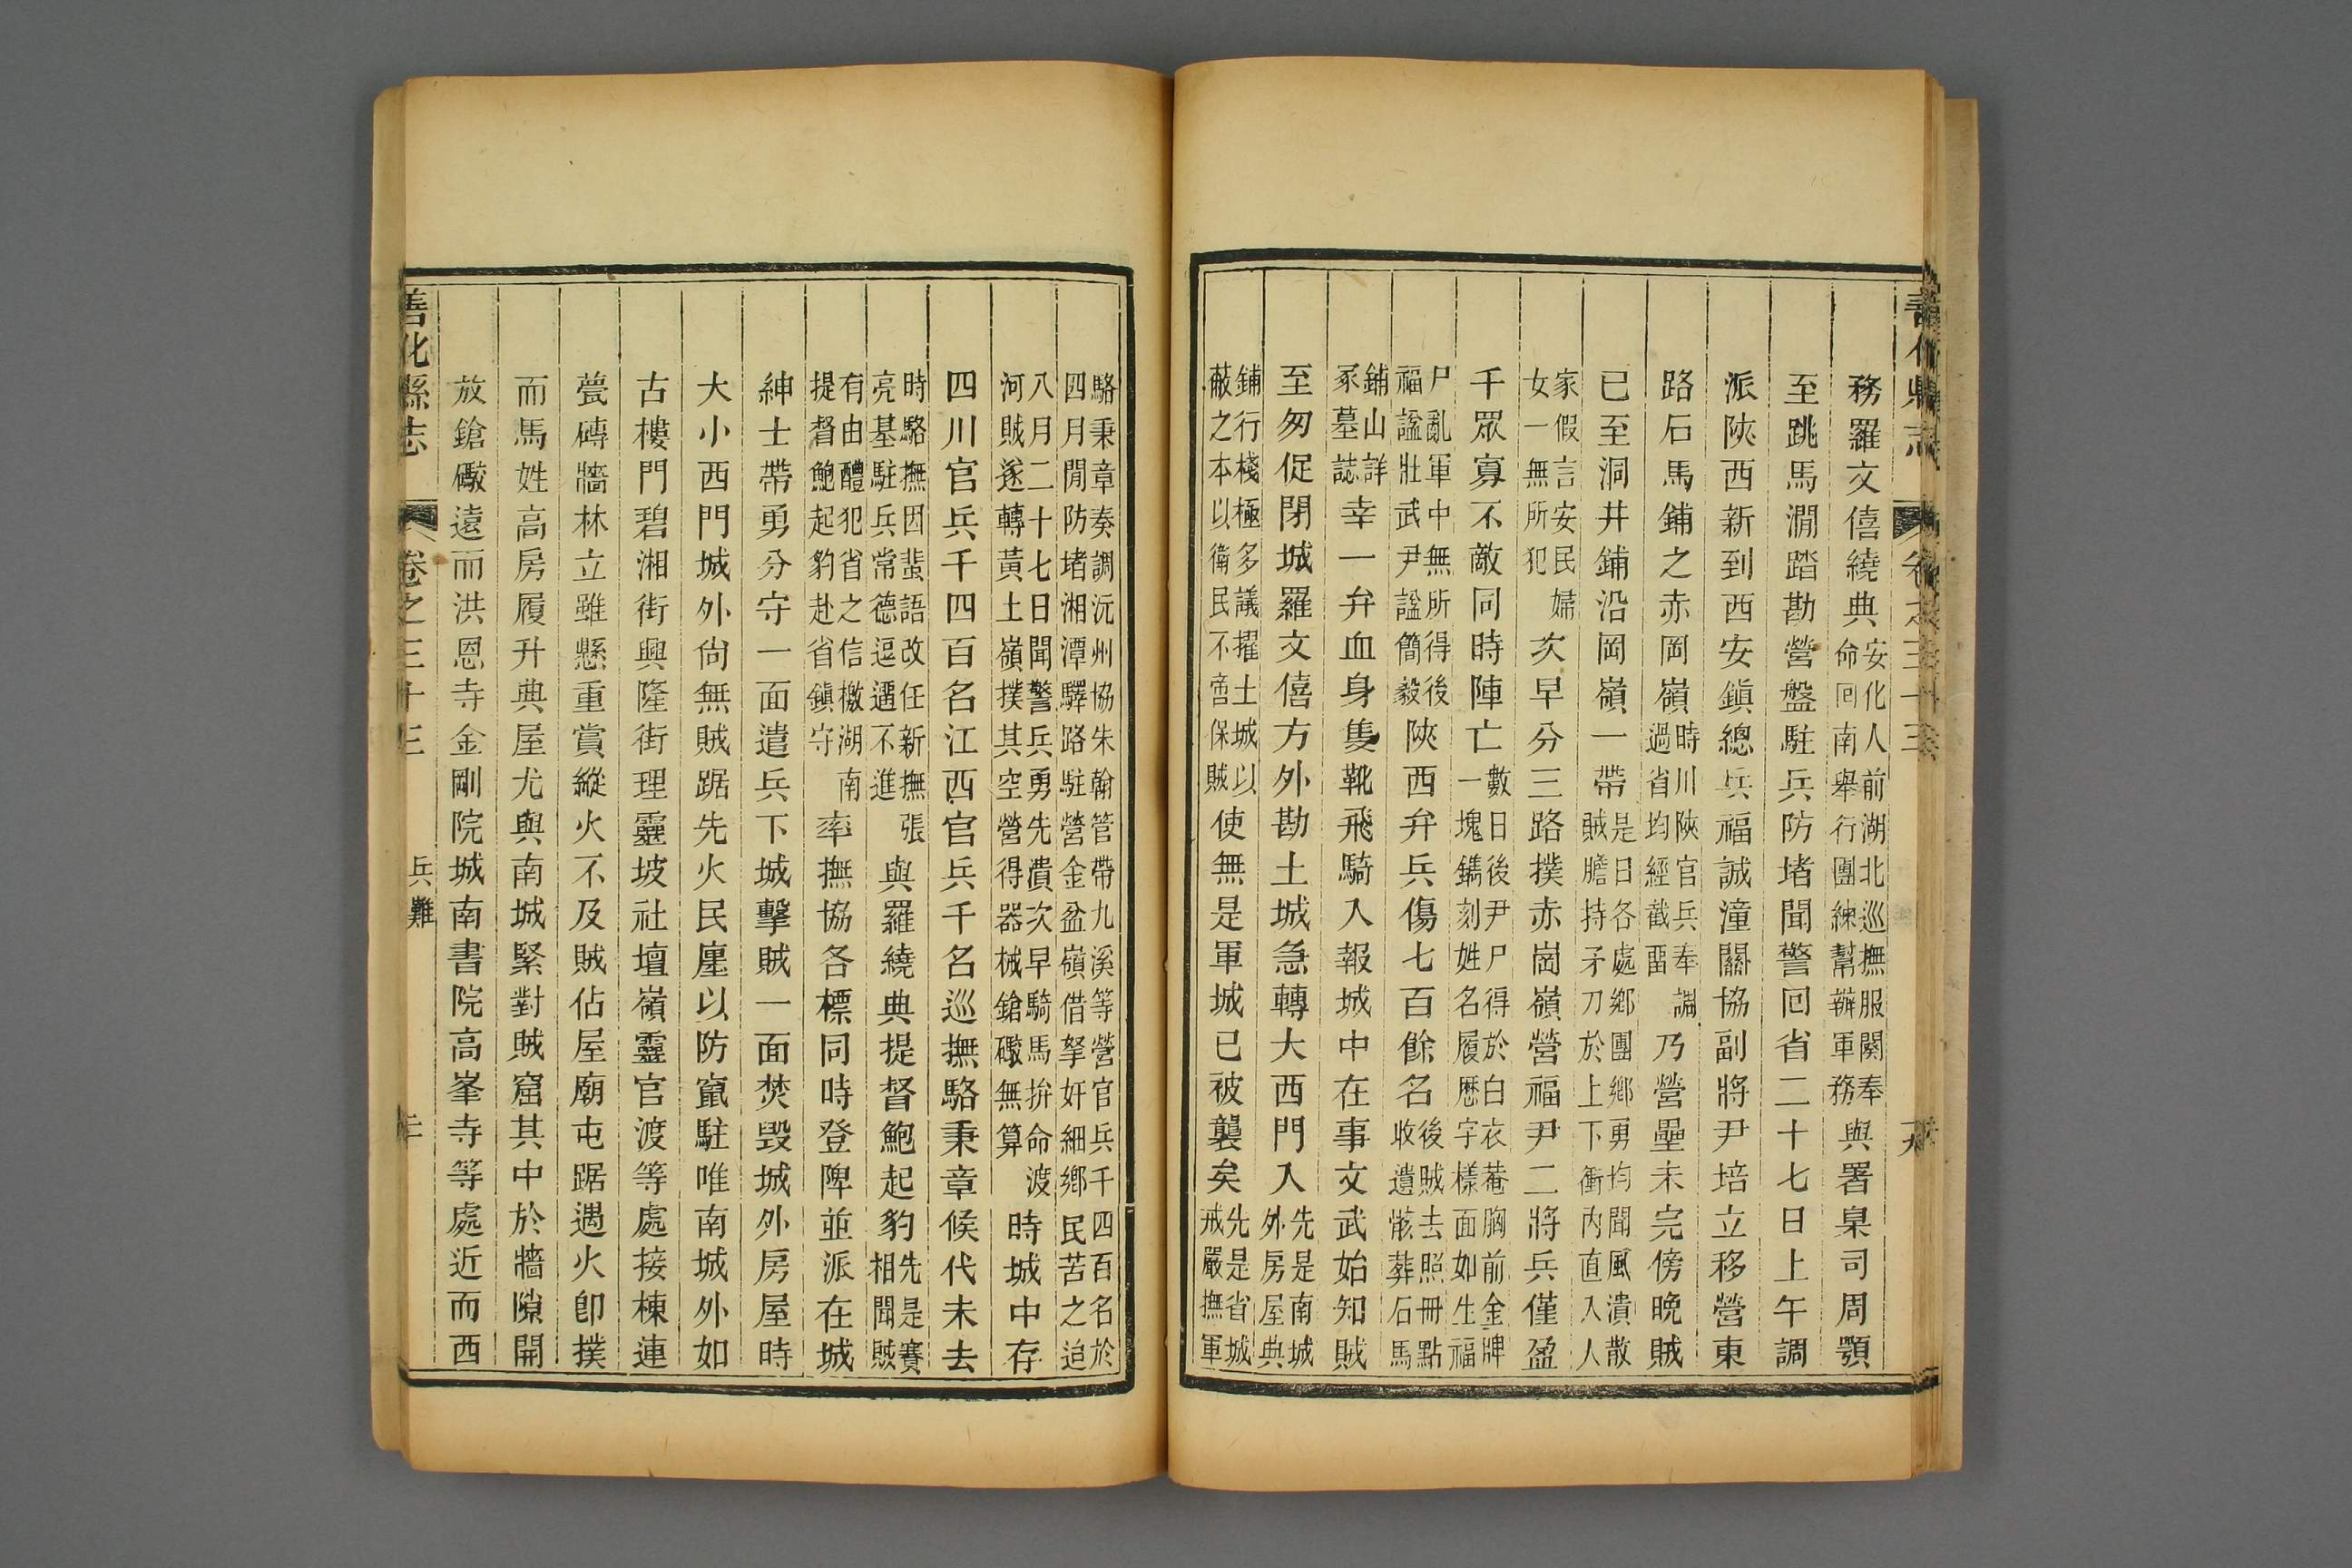 務羅文僖繞典安化人前湖北巡撫服闋奉命回南舉行團練幫辦軍務與署臬司周顎
至跳馬澗踏勘營盤駐兵防堵聞警回省二十七日上午調
派陝西新到西安鎮總兵福誠潼關協副將尹培立移營東
路石馬鋪之赤岡嶺時川陝官兵奉調過省均經截畱乃營壘未完傍晚賊
已至洞井鋪沿岡嶺一帶是日各處鄉團鄉勇均聞風潰散賊膽持矛刀於上下衝內直入人
家假言安民婦女一無所犯次早分三路撲赤岡嶺營福尹二將兵僅盈
千眾寡不敵同時陣亡數日後尹尸得於白衣菴胸前金牌一塊鐫刻姓名履歷字樣面如生福
尸亂軍中無所得後福謚壯武尹謚簡毅陝西弁兵傷七百餘名後賊去照冊點收遺骸葬石馬
鋪山詳冢墓誌幸一弁血身隻靴飛騎入報城中在事文武始知賊
至匆促閉城羅文僖方外勘土城急轉大西門入先是南城外房屋典
鋪行棧極多議擢土城以蔽之本以衛民不啻保賊使無是軍城已被襲矣先是省城戒嚴撫軍
駱秉章奏調沅州協朱翰管帶九溪等營官兵千四百名於四月閒防堵湘潭驛路駐營金盆嶺借拏奸細鄉民苦之迨
八月二十七日聞警兵勇先潰次早騎馬拚命渡河賊遂轉黃土嶺撲其空營得器械鎗礮無算時城中存
四川官兵千四百名江西官兵千名巡撫駱秉章候代未去
時駱撫因蜚語改任新撫張亮基駐兵常德逗遛不進與羅繞典提督鮑起豹先是賽相聞賊
有由醴犯省之信檄湖南提督鮑起豹赴省鎮守率撫協各標同時登陴並派在城
紳士帶勇分守一面遣兵下城擊賊一面焚毀城外房屋時
大小西門城外尙無賊踞先火民廛以防竄駐唯南城外如
古樓門碧湘街興隆街理靈坡社壇嶺靈官渡等處接棟連
甍磚牆林立雖懸重賞縱火不及賊佔屋廟屯踞遇火卽撲
而馬姓高房履升典屋尤與南城緊對賊窟其中於牆隙開
放鎗礮遠而洪恩寺金剛院城南書院高峯寺等處近而西
善化縣志 卷之三十三 兵難